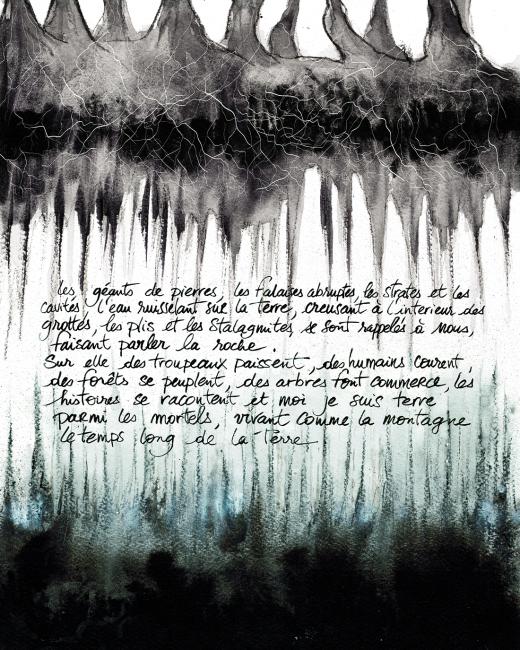 les géants de pierres, les falaises abruptes, les strates et les
cavités, l'eau ruisselant sur la terre, creusant à l'intérieur des
grottes, les plis et les stalagmites se sont rappelés à nous,
faisant parler la roche.
Sur elle des troupeaux paissent, des humains courent,
des forêts se peuplent, des arbres font commerce, les
histoires se racontent et moi je suis terre
parmi les mortels, vivant comme la montagne
le temps long de la Terre